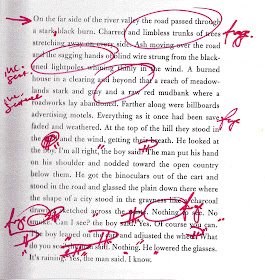 On the far side of the river valley the road passed through
a stark black burn. Charred and limbless trunks of trees
stretching away on every side. Ash moving over the road
and the sagging hands of blind wire strung from the black-
ened lightpoles whining thinly in the wind. A burned
house in a clearing and beyond that a reach of meadow-
lands stark and gray and a raw red mudbank where a
roadworks lay abandoned. Farther along were billboards
advertising motels. Everything as it once had been save
faded and weathered. At the top of the hill they stood in
the cold and the wind, getting their breath. He looked at
the boy. I'm all right, the boy said. The man put his hand
on his shoulder and nodded toward the open country
below them. He got the binoculars out of the cart and
stood in the road and glassed the plain down there where
the shape of a city stood in the grayness like a charcoal
drawing sketched across the waste. Nothing to see. No
smoke. Can I see? the boy said. Yes. Of course you can.
The boy leaned on the cart and adjusted the wheel. What
do you see? the man said. Nothing. He lowered the glasses.
It's raining. Yes, the man said. I know.
frag.
inc.
sent.
frag